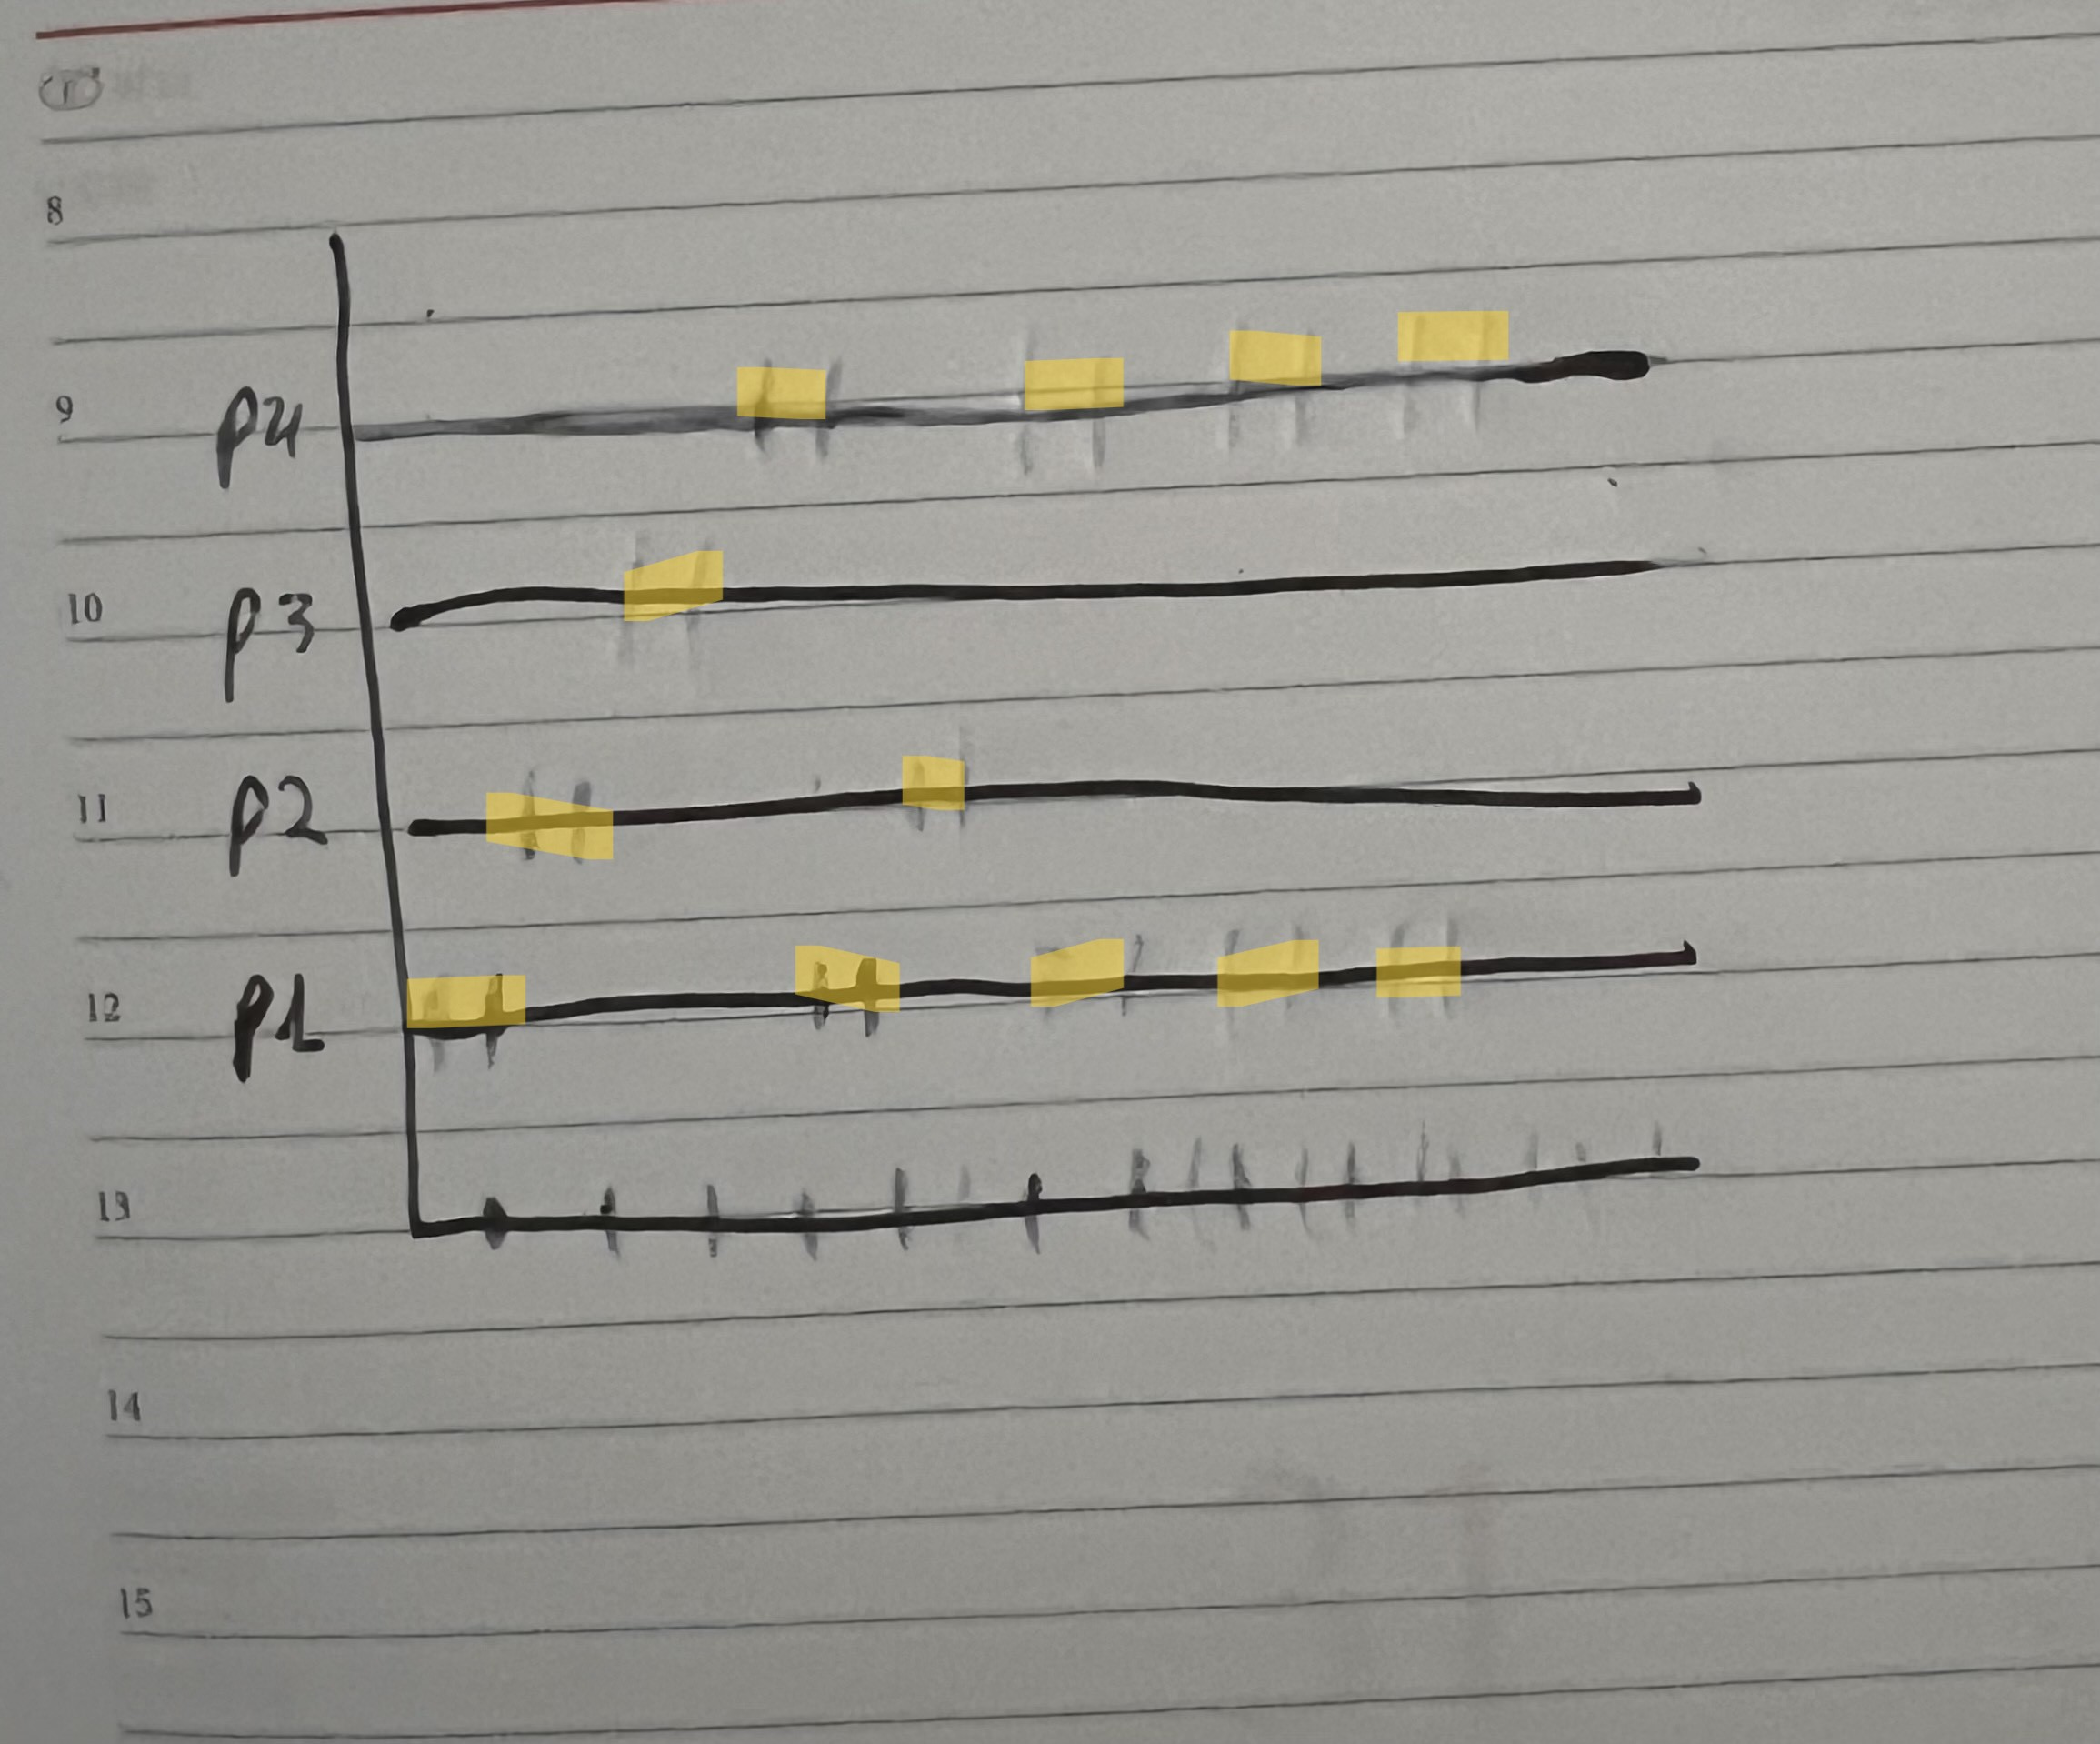 8
9
P4
10
P3
11
P2
12
P1
13
14
15